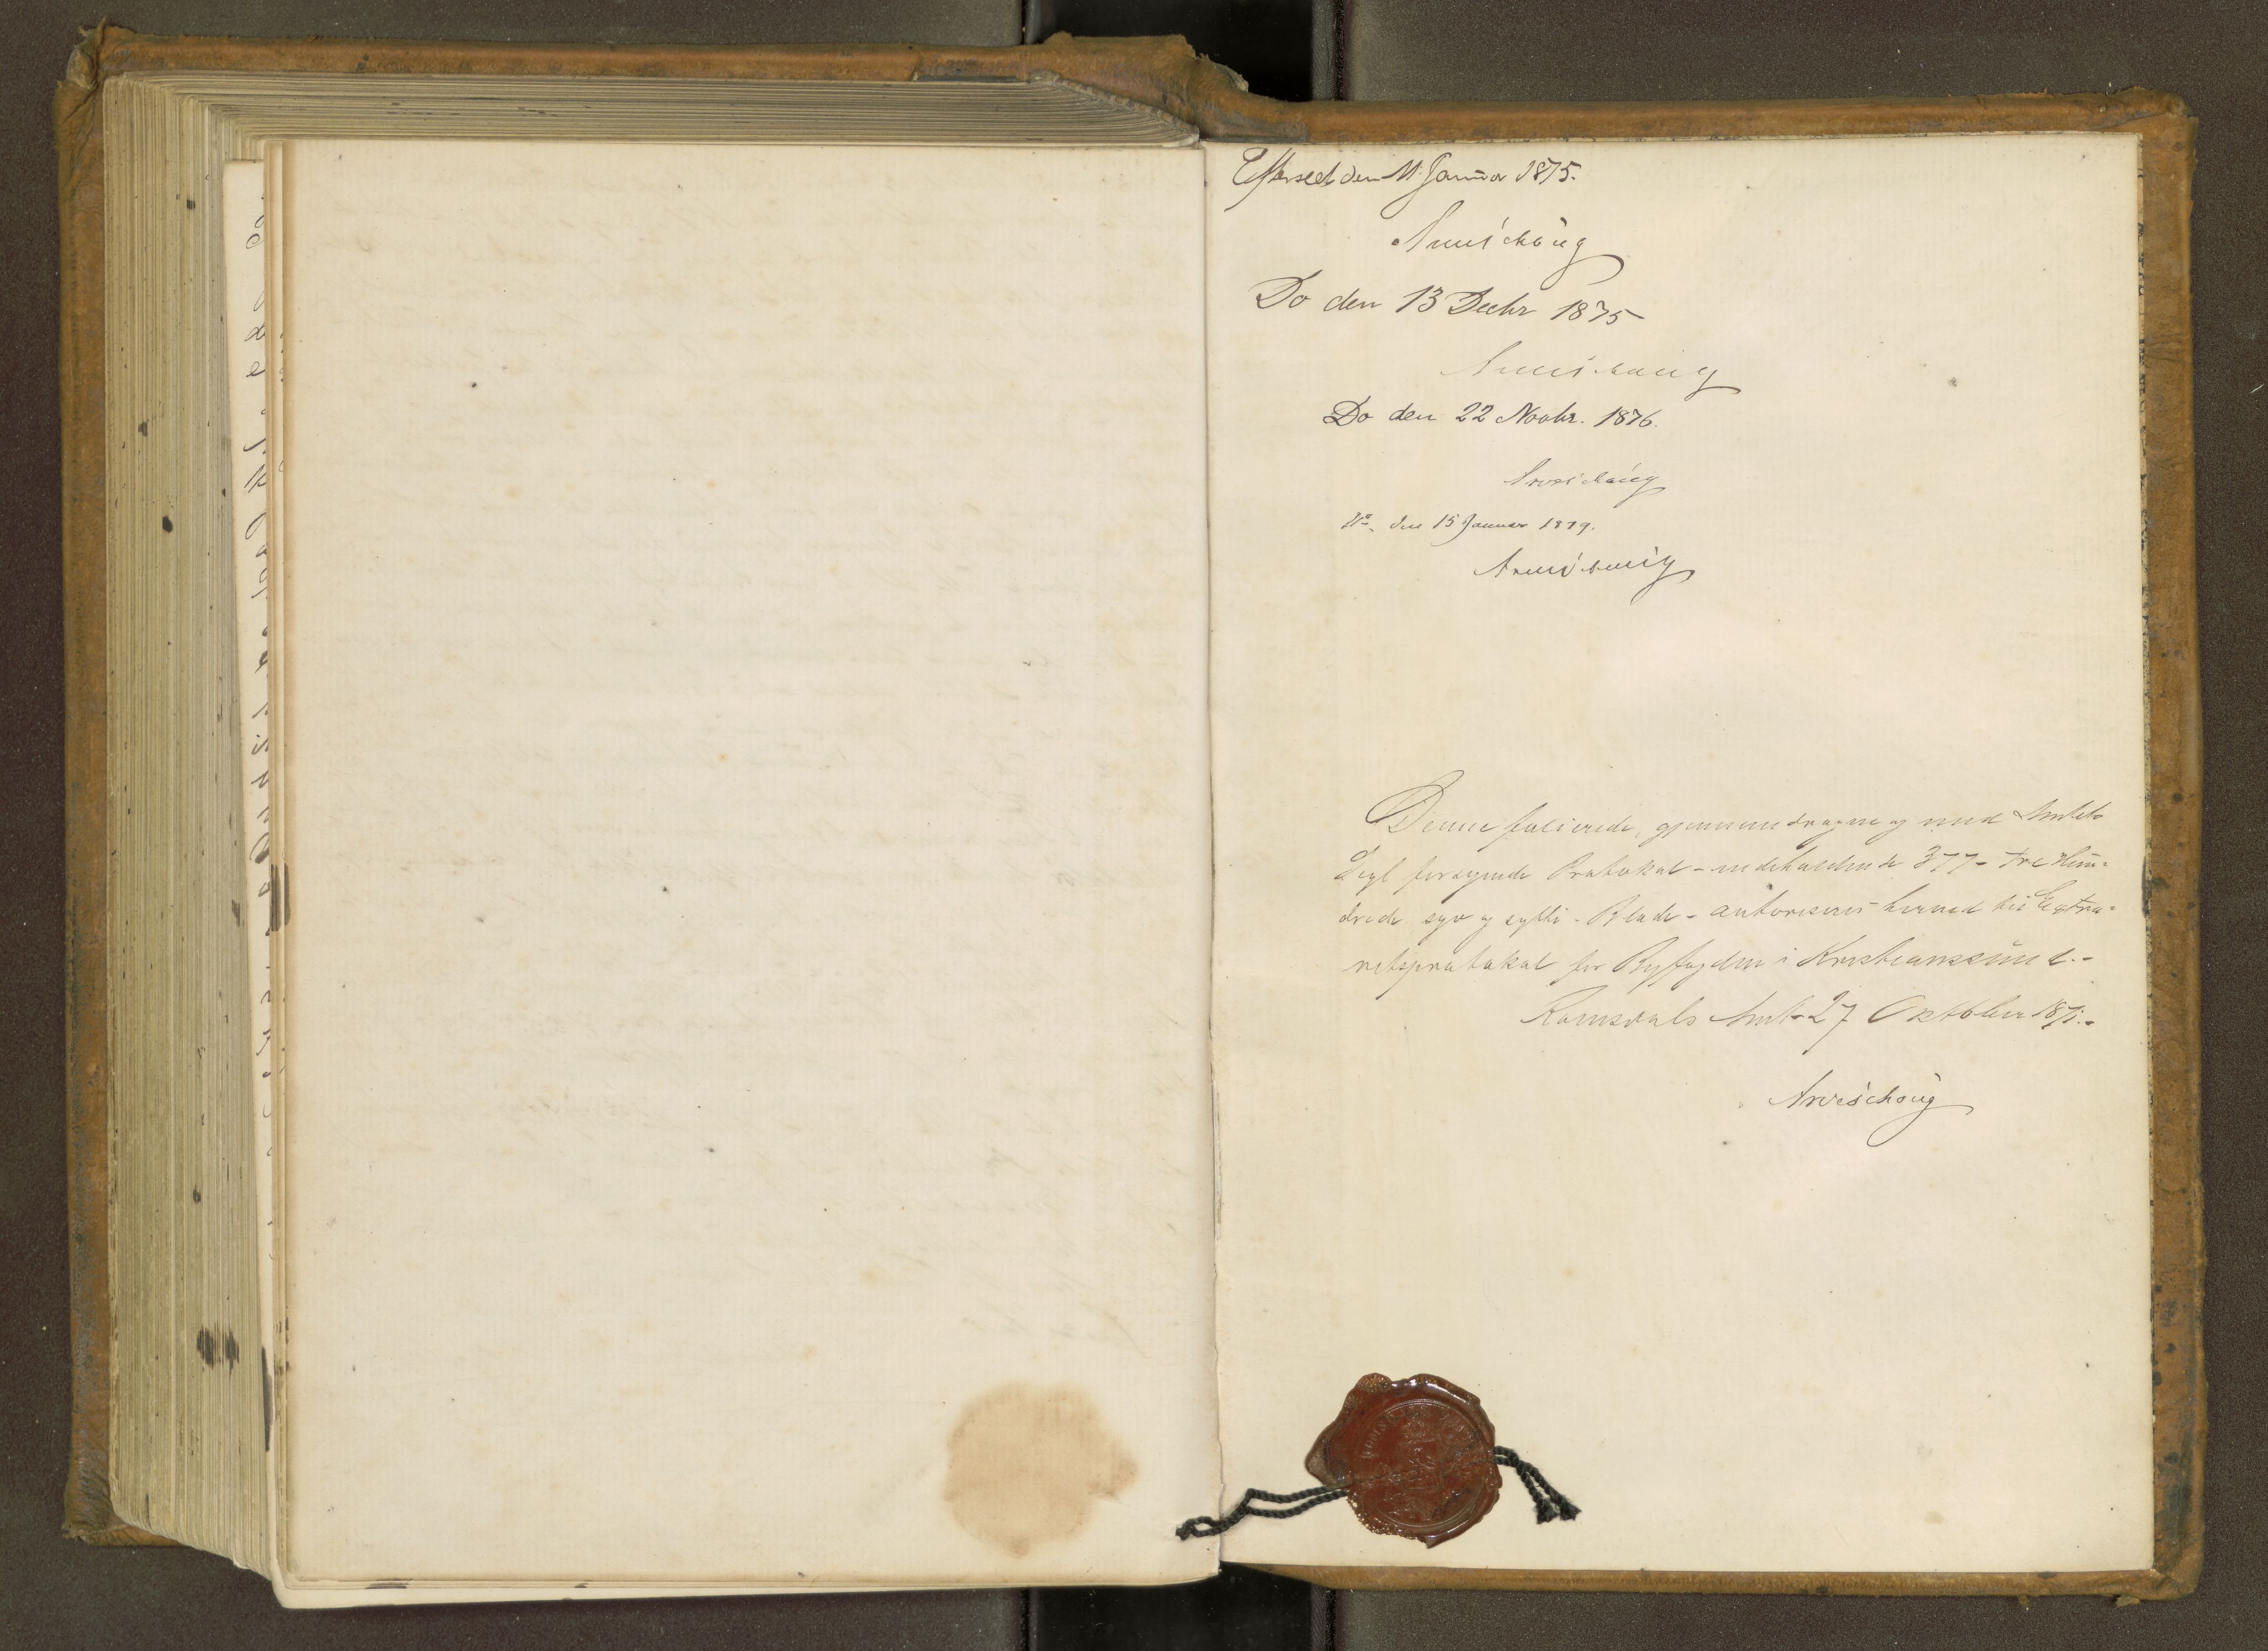 Efterseet den 11 Januar 1875.
Arveschoug
Do den 13 Decbr 1875
Arveschoug
Do den 22 Novbr. 1876.
Arveschoug
Do den 15 Januar 1879.
Arveschoug
Denne folierede, gjennemdragne og med Amtets
Segl forsynede Protokol - indeholdende 377 - tre Hun-
drede syv og sytti - Blade - autoriseres herved til Extra-
retsprotokol for Byfogden i Kristianssund.-
Romsdals Amt 27 Oktober 1871.-
Arveschoug